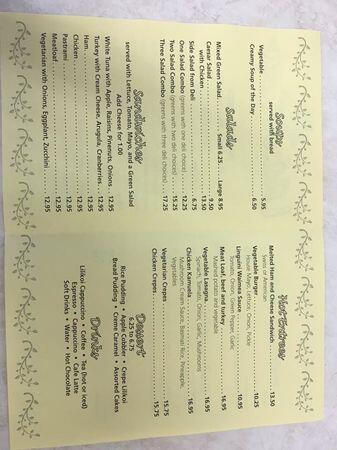 Soups
served with bread
Vegetable 5.95
Creamy Soup of the Day 6.50
Salads
Mixed Green Salad Small 8.25 Large 8.95
Caesar Salad 9.50
with Chicken 13.50
Side Salad from Deli 6.75
One Salad Combo (greens with one deli choice) 12.25
Two Salad Combo (greens with two deli choices) 15.25
Three Salad Combo (greens with three deli choices) 17.25
Sandwiches
served with Lettuce, Tomato, Mayo, and a Green Salad
Add Cheese for 1.00
White Tuna with Apple, Raisins, Pinenuts, Onions 12.95
Turkey with Cream Cheese, Arugula, Cranberries 12.95
Ham 12.95
Chicken 12.95
Pastrami 12.95
Meatloaf 12.95
Vegetarian with Onions, Eggplant, Zucchini 12.95
Hot Entrees
Melted Ham and Cheese Sandwich 13.50
Swiss or American
Vegetable Burger 10.25
House Mayo, Lettuce, Onion, Pickle
Linguini Waimea Sauce 10.95
Tomato, Onion, Green Pepper, Garlic
Meat Loaf, beef and turkey 16.95
Mashed potato and vegetable
Vegetable Lasagna 16.95
Spinach, Tomato, Onion, Garlic, Mushrooms
Chicken Kamuela 16.95
Mushroom Cream Sauce, Basmati Rice, Pineapple,
Vegetables
Vegetarian Crepes 15.75
Chicken Crepes 15.75
Dessert
6.25 to 6.75
Rice Pudding • Apple Cobbler • Crepe Lilikoi
Bread Pudding • Creme Caramel • Assorted Cakes
Drinks
Lilikoi Cappuccino • Coffee • Tea (hot or iced)
Espresso • Cappuccino • Cafe Latte
Soft Drinks • Water • Hot Chocolate